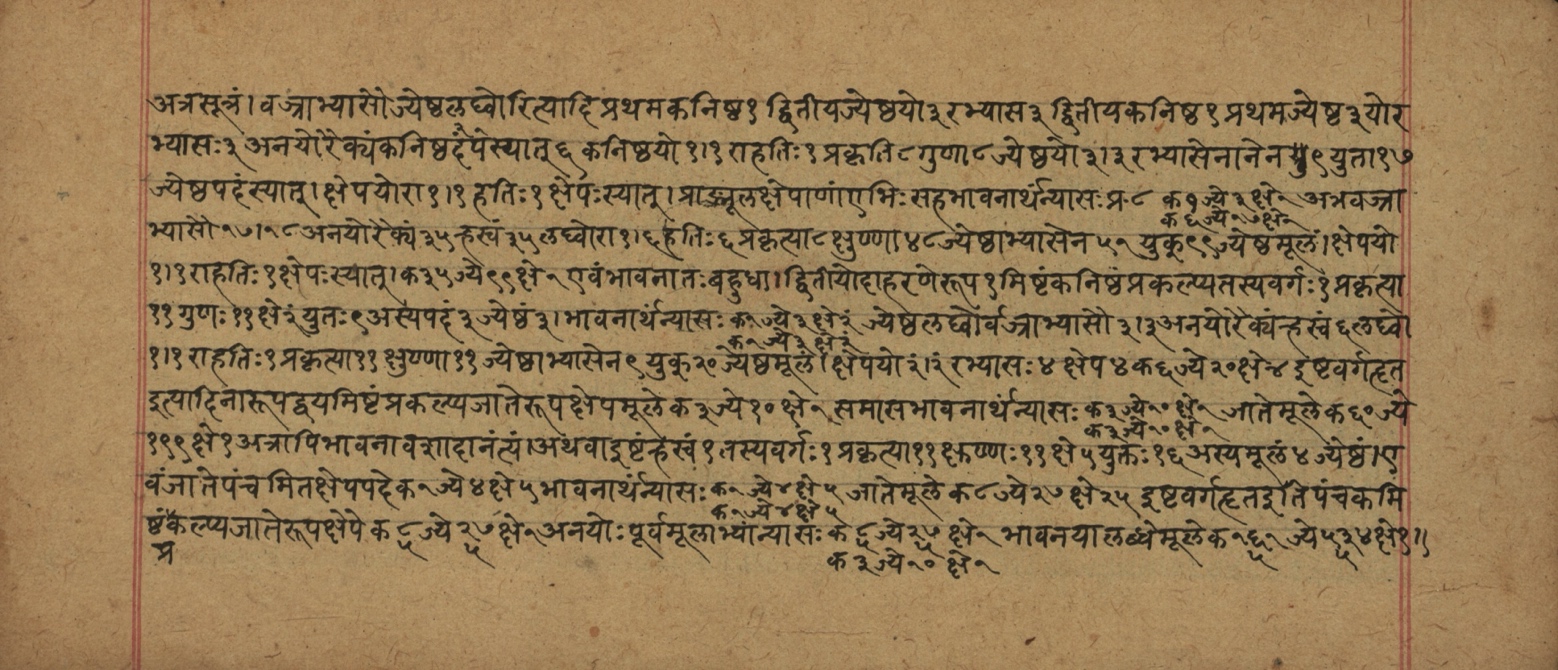 अत्रसूत्रं। वज्राभ्यासौज्येष्ठलघ्वोरित्यादि प्रथमकनिष्ठ १ द्वितीयज्येष्ठयो ३ रभ्यास ३ द्वितीयकनिष्ठ १ प्रथमज्येष्ठ ३ योर
भ्यासः ३ अनयोरैक्यंकनिष्ठपदंस्यात् ६ कनिष्ठयो १।१ राहतिः १ प्रकृति ८ गुणा ८ ज्येष्ठयो ३।३ रभ्यासेनानेन ९ युता १७
ज्येष्ठपदंस्यात्। क्षेपयोरा १।१ हतिः १ क्षेपःस्यात्। प्राङ्मूलक्षेपाणांएभिः सहभावनार्थंन्यासः प्र ८ क १ ज्ये ३ क्षे १ अत्रवज्रा
क ६ ज्ये १७ क्षे १
भ्यासौ १७।१८ अनयोरैक्यं ३५ ह्रस्वं ३५ लघ्वोरा १।६ हतिः ६ प्रकृत्या ८ क्षुण्णा ४८ ज्येष्ठाभ्यासेन ५१ युक् ९९ ज्येष्ठमूलं। क्षेपयो
१।१ राहतिः १ क्षेपःस्यात्। क ३५ ज्ये ९९ क्षे १ एवंभावनातः बहुधा। द्वितीयोदाहरणेरूप १ मिष्टंकनिष्ठंप्रकल्प्यतस्यवर्गः १ प्रकृत्या
११ गुणः ११ क्षे २ं युतः ९ अस्यपदं ३ ज्येष्ठं ३। भावनार्थंन्यासः क १ ज्ये ३ क्षे २ं ज्येष्ठलघ्वोर्वज्राभ्यासौ ३।३ अनयोरैक्यंह्रस्वं ६ लघ्वो
क १ ज्ये ३ क्षे २ं
१।१ राहतिः १ प्रकृत्या ११ क्षुण्णा ११ ज्येष्ठाभ्यासेन ९ युक् २० ज्येष्ठमूलं। क्षेपयो २ं।२ं रभ्यासः ४ क्षेप ४ क ६ ज्ये २० क्षे ४ इष्टवर्गहृत
इत्यादिनारूपद्वयमिष्टंप्रकल्प्यजातेरूपक्षेपमूले क ३ ज्ये १० क्षे १ समासभावनार्थंन्यासः क ३ ज्ये १० क्षे १ जातेमूले क ६० ज्ये
क ३ ज्ये १० क्षे १
१९९ क्षे १ अत्रापिभावनावशादानंत्यं। अथवाइष्टंह्रस्वं १ तस्यवर्गः १ प्रकृत्या ११ क्षुण्णः ११ क्षे ५ युक्तः १६ अस्यमूलं ४ ज्येष्ठं। ए
वंजातेपंचमितक्षेपपदे क १ ज्ये ४ क्षे ५ भावनार्थंन्यासः क १ ज्ये ४ क्षे ५ जातेमूले क ८ ज्ये २७ क्षे २५ इष्टवर्गहृतइतिपंचकमि
क १ ज्ये ४ क्षे ५
ष्टंप्रकल्प्यजातेरूपक्षेपे क ८/५ ज्ये २७/५ क्षे १ अनयोः पूर्वमूलाभ्यांन्यासः क ८/५ ज्ये २७/५ क्षे १ भावनयालब्धेमूले क १६१/५ ज्ये ५३४/५ क्षे १॥
क ३ ज्ये १० क्षे १